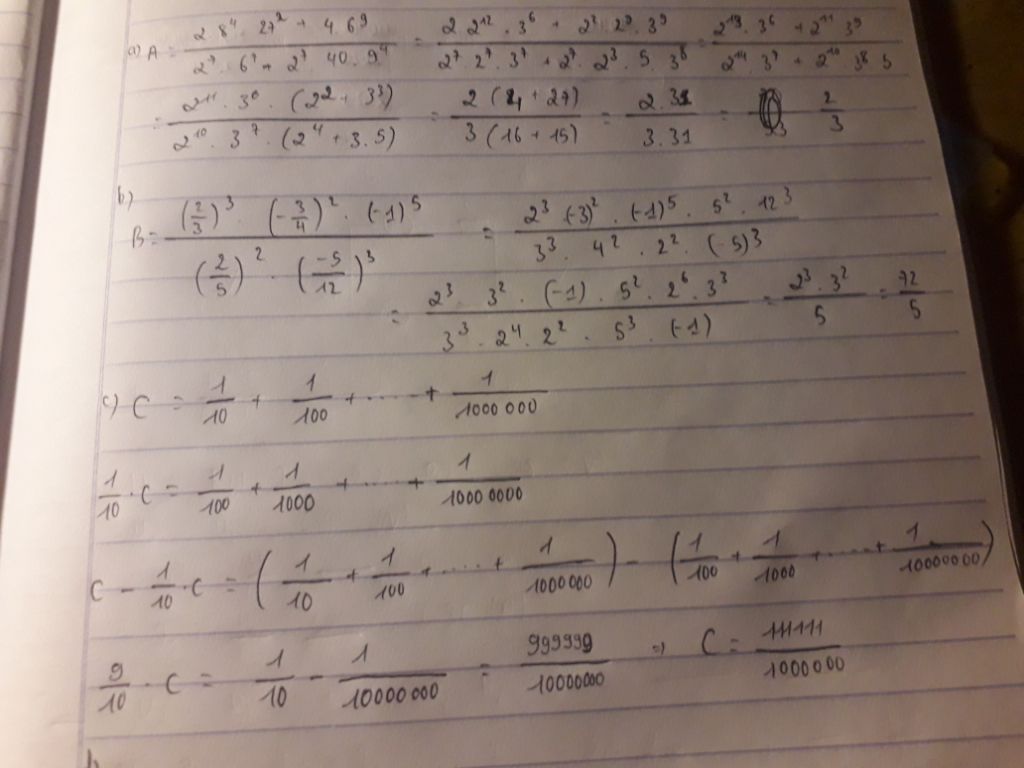 a) A = \frac{2 \cdot 8^4 \cdot 27^2 + 4 \cdot 6^9}{2^7 \cdot 6^7 + 2^7 \cdot 40 \cdot 9^4} = \frac{2 \cdot 2^{12} \cdot 3^6 + 2^2 \cdot 2^9 \cdot 3^9}{2^7 \cdot 2^7 \cdot 3^7 + 2^7 \cdot 2^3 \cdot 5 \cdot 3^8} = \frac{2^{13} \cdot 3^6 + 2^{11} 3^9}{2^{14} \cdot 3^7 + 2^{10} 3^8 5}
= \frac{2^{11} \cdot 3^6 \cdot (2^2 + 3^3)}{2^{10} \cdot 3^7 \cdot (2^4 + 3.5)} = \frac{2 (4 + 27)}{3 (16 + 15)} = \frac{2.31}{3.31} = \frac{2}{3}
b)
B = \frac{(\frac{2}{3})^3 \cdot (-\frac{3}{4})^2 \cdot (-1)^5}{(\frac{2}{5})^2 \cdot (\frac{-5}{12})^3} = \frac{2^3 (-3)^2 \cdot (-1)^5 \cdot 5^2 \cdot 12^3}{3^3 \cdot 4^2 \cdot 2^2 \cdot (-5)^3}
= \frac{2^3 \cdot 3^2 \cdot (-1) \cdot 5^2 \cdot 2^6 \cdot 3^3}{3^3 \cdot 2^4 \cdot 2^2 \cdot 5^3 \cdot (-1)} = \frac{2^3 \cdot 3^2}{5} = \frac{72}{5}
c) C = \frac{1}{10} + \frac{1}{100} + ..... + \frac{1}{1000 000}
\frac{1}{10} \cdot C = \frac{1}{100} + \frac{1}{1000} + ..... + \frac{1}{1000 0000}
C - \frac{1}{10} \cdot C = (\frac{1}{10} + \frac{1}{100} + ..... + \frac{1}{1000000}) - (\frac{1}{100} + \frac{1}{1000} + ..... + \frac{1}{10000000})
\frac{9}{10} \cdot C = \frac{1}{10} - \frac{1}{10000000} = \frac{999999}{10000000} ⇒ C = \frac{111111}{1000000}